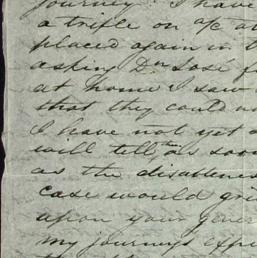 journey. I have
a trifle on a/c o
placed again in t
asking Dn José f
at home I saw
that they could n
I have not yet a
will tell them as soon
as the disablenes
case would gri
upon your gener
my journeys expe